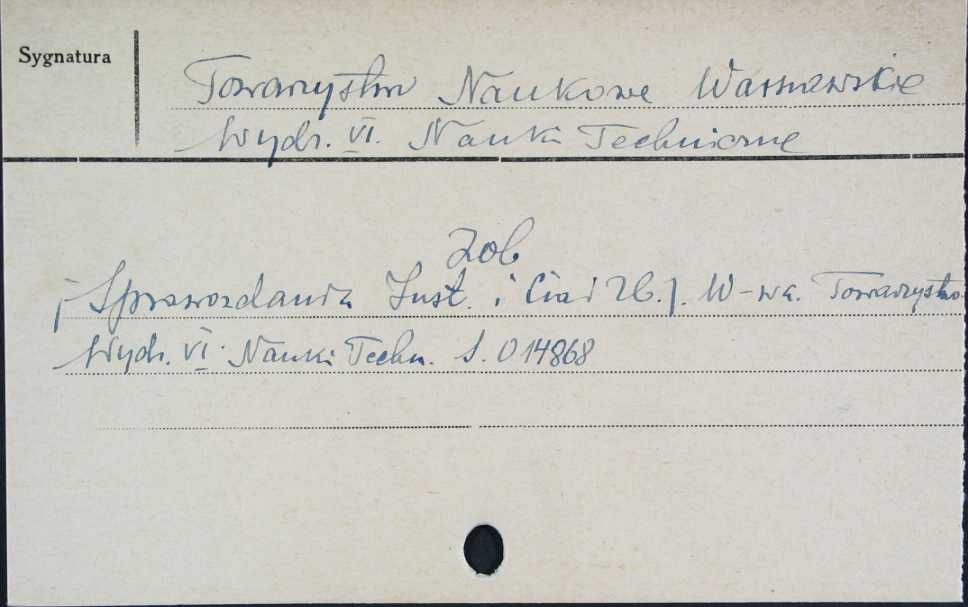 Sygnatura
Towarzystwo Naukowe Warszawskie
Wydz. VI. Nauki Techniczne
Zob
[Sprawozdania Inst. i Ciał Zb.]. W-wa. Towarzystwo
Wydz. VI. Nauki Techn. S. 014868